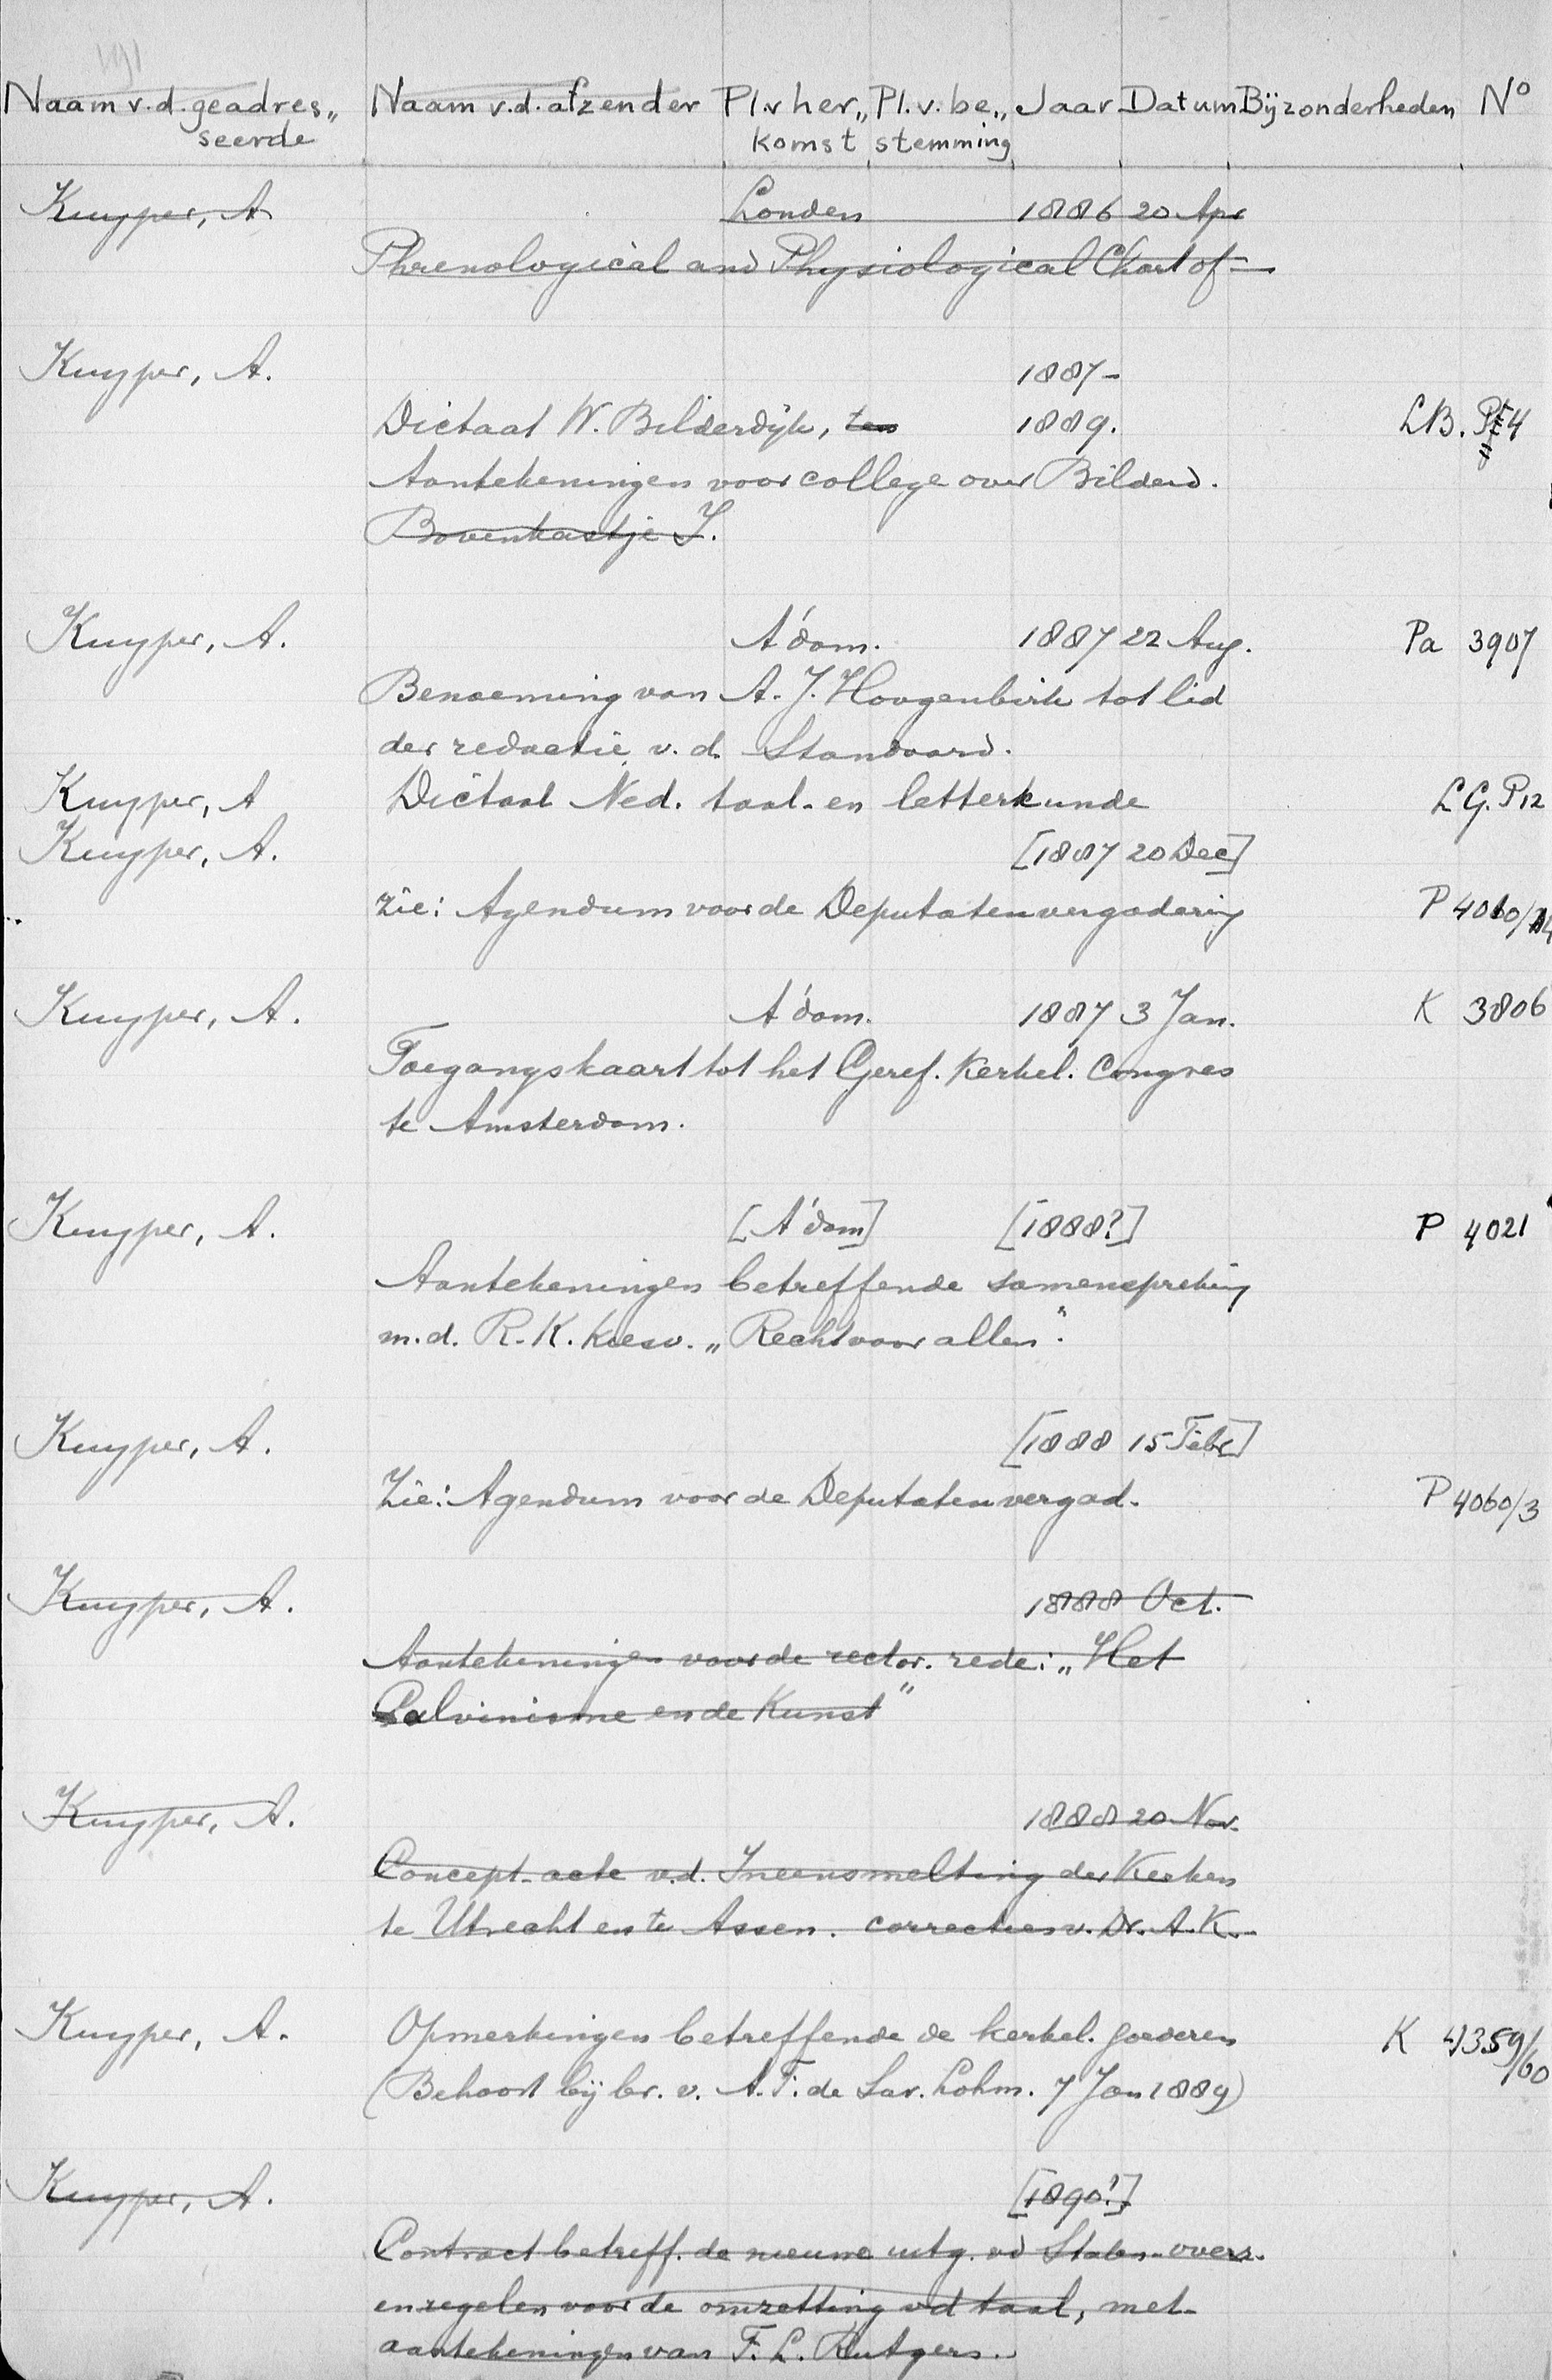 191
Naam v.d. geadres„ Naam v.d. afzender Pl.v her„ Pl.v.be„ Jaar Datum Bijzonderheden No
seerde komst stemming
Kuyper, A Londen 1886 20 Apr
Phrenological and Physiological Chart of —
Kuyper, A. 1887-
Dictaat W. Bilderdijk, ten 1889. LB. 4
Aantekeningen voor college over Bilderd.
Bovenkastje I.
Kuyper, A. A'dam. 1887 22 Aug. Pa 3907
Benoeming van A. J. Hoogenbirk tot lid
der redactie v. d. Standaard.
Kuyper, A Dictaat Ned. taal- en letterkunde LG. P12
Kuyper, A. [1887 20 Dec]
zie: Agendum voor de Deputatenvergadering P
Kuyper, A. A'dam. 1887 3 Jan. K 3806
Toegangskaart tot het Geref. Kerkel. Congres
te Amsterdam.
Kuyper, A. [A'dam] [1888?] P 4021
Aantekeningen betreffende samenspreking
m.d. R.K. kiesv. „Recht voor allen".
Kuyper, A. [1888 15 Febr]
Zie: Agendum voor de Deputatenvergad. P 4060/3
Kuyper, A. 1888 Oct.
Aantekeningen voor de rector. rede: „Het
Calvinisme en de Kunst"
Kuyper, A. 1888 20 Nov.
Concept-acte v.d. Ineensmelting der Kerken
te Utrecht en te Assen. correcties v. Dr. A. K.
Kuyper, A. Opmerkingen betreffende de kerkel. goederen K 4359/60
(Behoort bij br. v. A. F. de Sav. Lohm. 7 Jan 1889)
Kuyper, A. [1890?]
Contract betreff. de nieuwe uitg. vd Staten-overz.
en regelen voor de omzetting vd taal, met
aantekeningen van F. L. Rutgers.